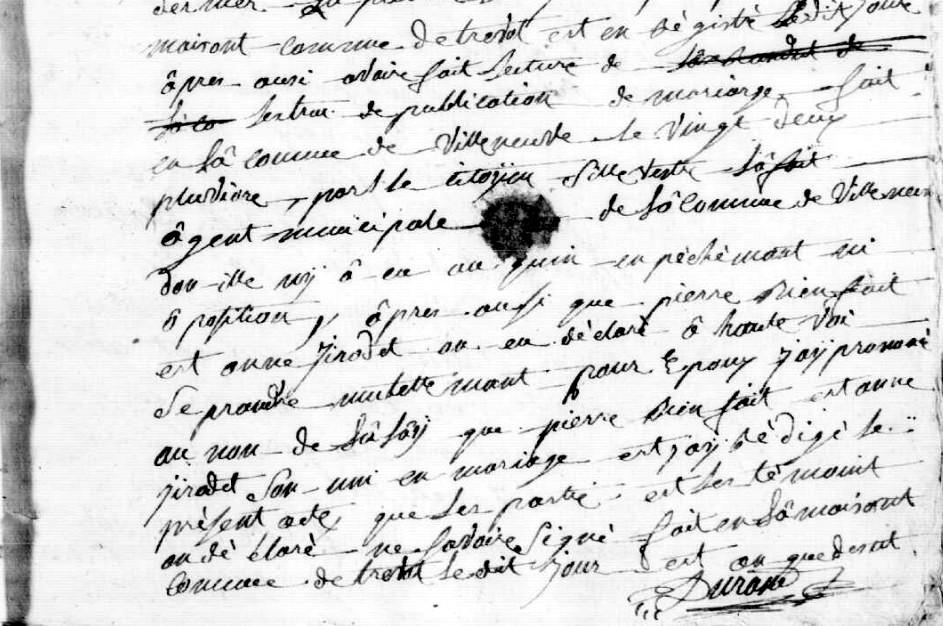 maisont commune de trevol est en régistré ledit jour
âpres ausi avoire fait lecture de
lextrai de publication de mariarge fait
en lâ commune de Villeneuve le vingt deux
pluviôre, pars le citoÿien
âgent municipale de lâ commune de Villeneuv
don ille nÿ â eu au quin en pêchêmant ni
ô position, âpres ausi que pierre Bien fait
est anne Jirodet on en déclarè â haute voi
se prandre mutuelle mant pour Epoux J'aÿ prononcé
au nom de lâ lôÿ que pierre Bien fait est anne
Jirodet son uni en mariage est J'aÿ rédigé le
présent acte, que les partie est les témoint
on dé claré ne savoire Signé fait en lâ maisont
commune de trevol ledit Jour est an que desut
Durand